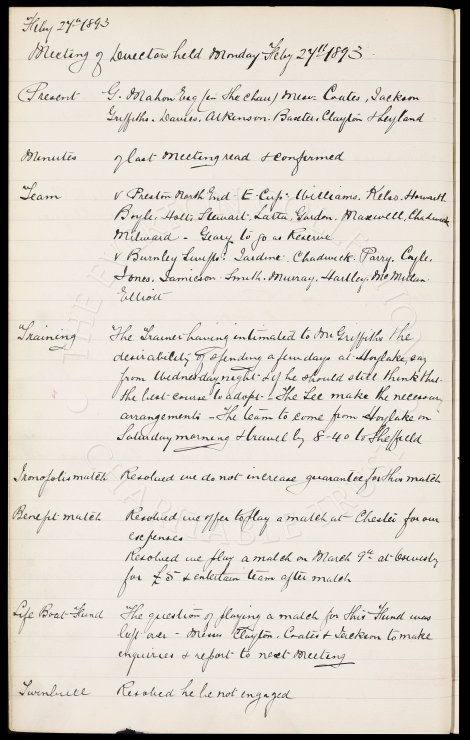 Feby 27th 1893
Meeting of Directors held Monday Feby 27th 1893.
Present G. Mahon Esq (in the chair) Messrs Coates, Jackson
Griffiths. Davies. Atkinson. Baxter. Clayton & Leyland
Minutes of last Meeting read & confirmed
Team v Preston North End E. Cup. Williams. Kelso. Howarth
Boyle. Holt. Stewart. Latta. Gordon. Maxwell. Chadwick
Milward - Geary to go as Reserve
v Burnley Jardine. Chadwick. Parry. Coyle.
Jones. Jamieson. Smith. Murray. Hartley. McMillan.
Elliott
Training The Trainer having intimated to Mr Griffiths the
desirability of spending a few days at Hoylake, say
from Wednesday night & if he should still think that
the best course to adopt - The Sec make the necessary
arrangements - The team to come from Hoylake on
Saturday morning & travel by 8-40 to Sheffield
Ironopolis match Resolved we do not increase guarantee for this match
Benefit match Resolved we offer to play a match at Chester for our
expenses
Resolved we play a match on March 9th at Oswestry
for £5 & entertain team after match
Life Boat Fund The question of playing a match for this Fund was
left over - Messrs Clayton, Coates & Jackson to make
enquiries & report to next Meeting
Resolved he be not engaged